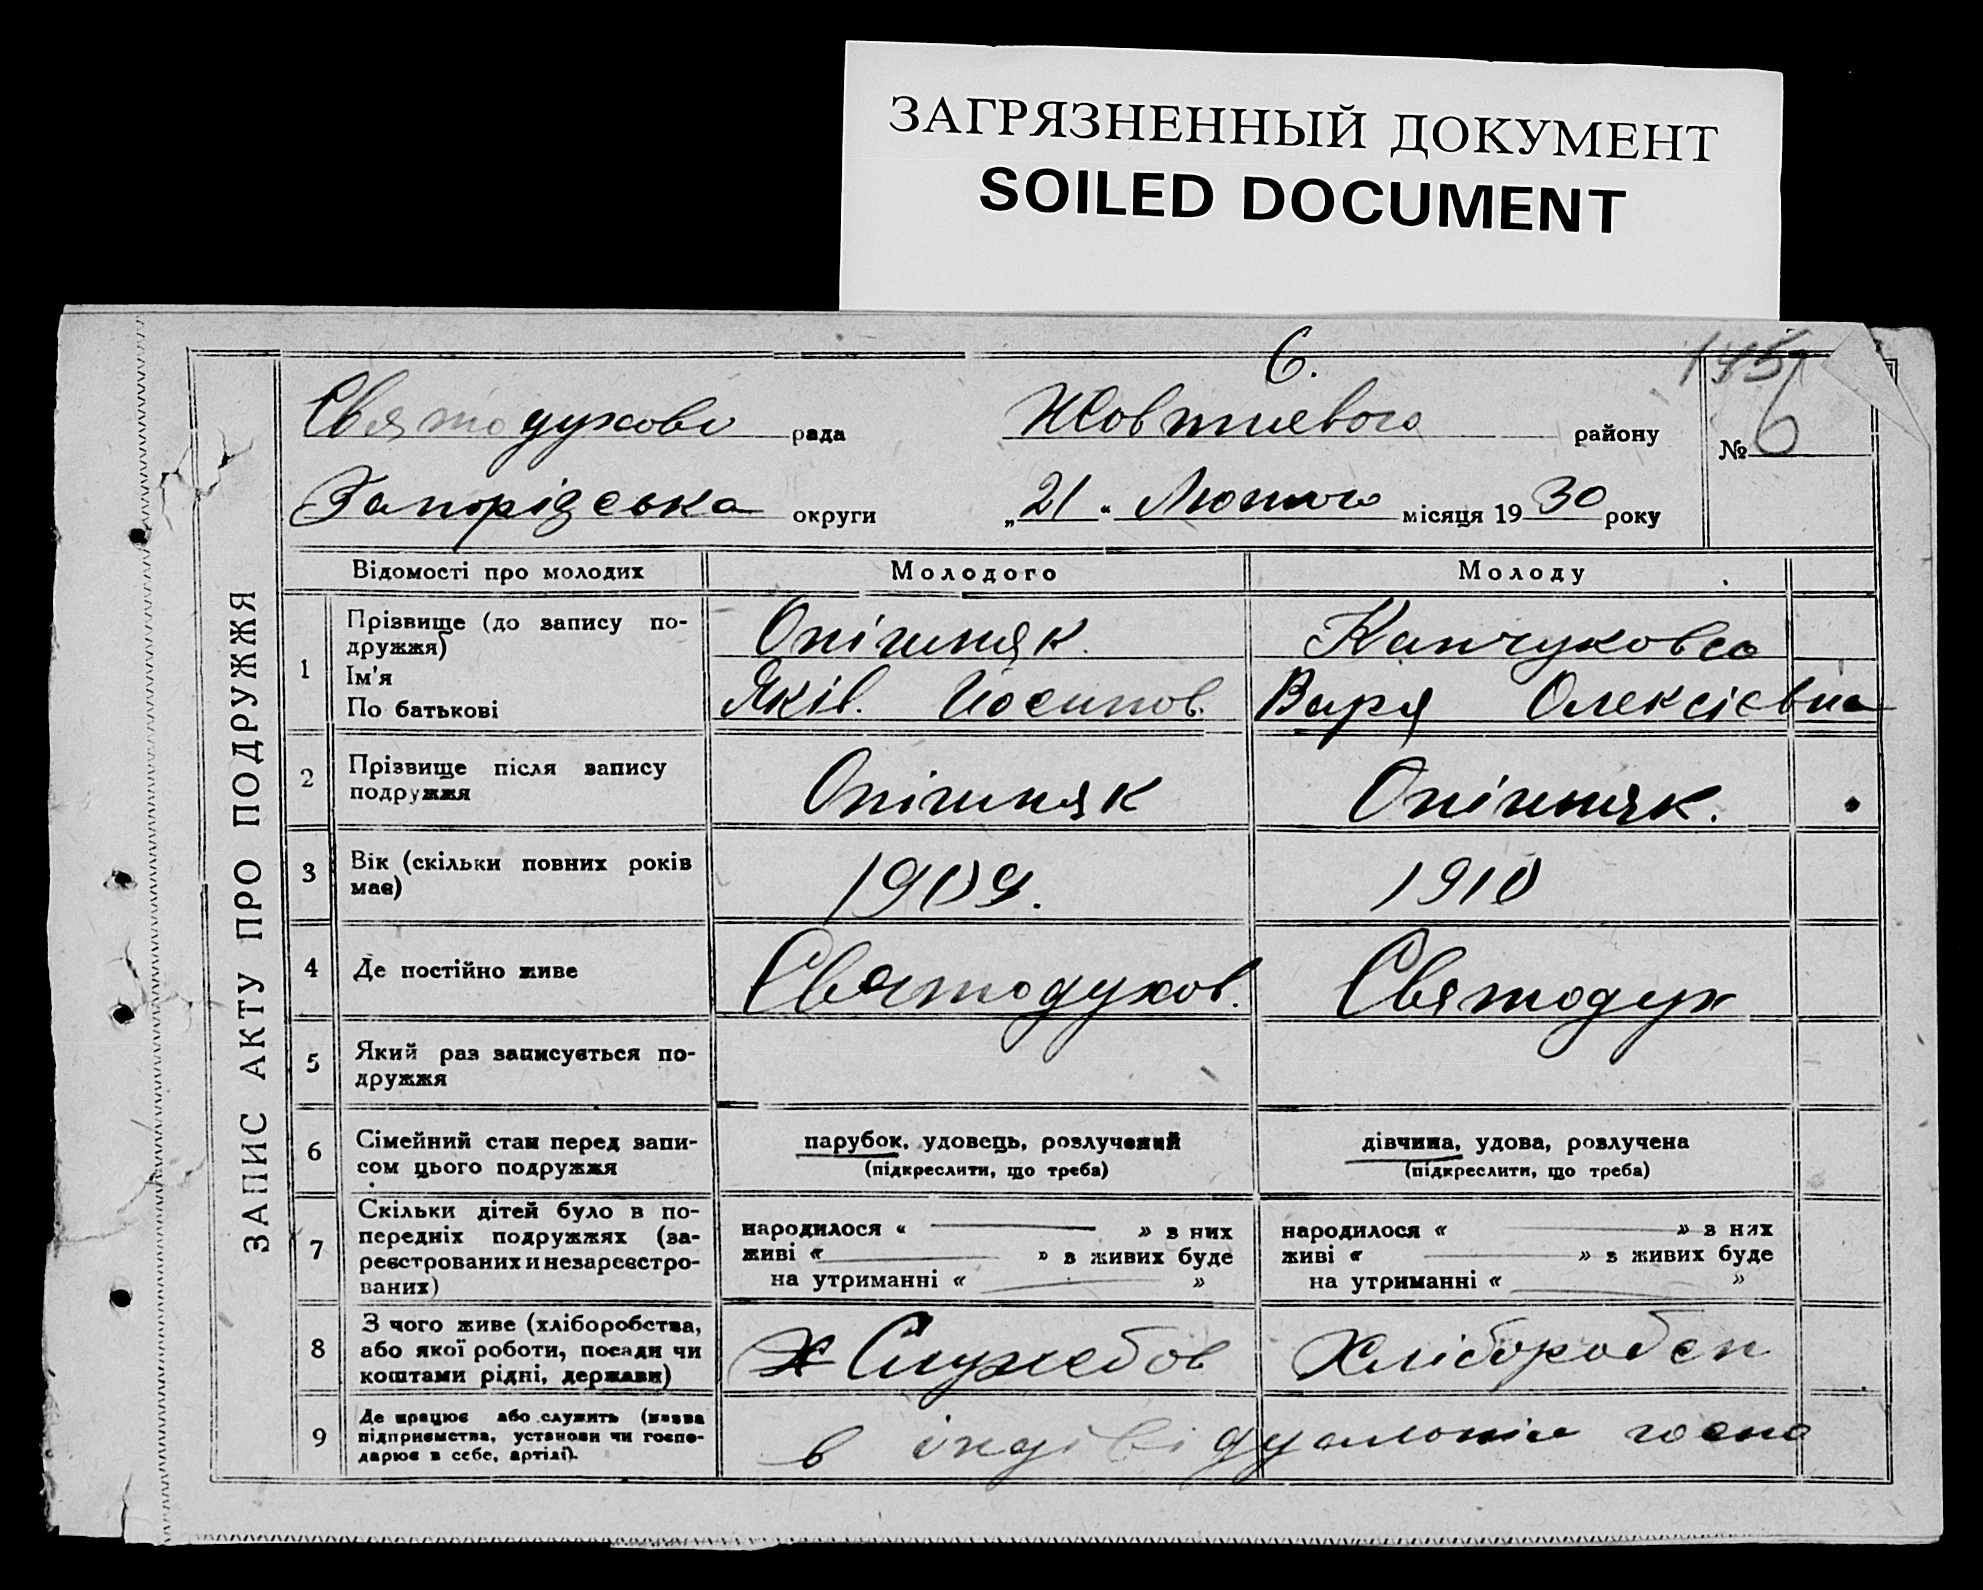 ЗАГРЯЗНЕННЫЙ ДОКУМЕНТ
SOILED DOCUMENT
6.
145
Святодухов рада Жовтневого району № 6
Запорізська округи „21" Лютого місяця 1930 року
ЗАПИС АКТУ ПРО ПОДРУЖЖЯ
Відомості про молодих Молодого Молоду
1 Прізвище (до запису по-дружжя) Опішняк. Капчукова
Ім'я
По батькові Яків. Йосипов. Варя Олексієвна
2 Прізвище після запису подружжя Опішняк Опішняк.
3 Вік (скільки повних років має) 1909. 1910
4 Де постійно живе Святодухов. Святодух
5 Який раз записується по-дружжя
6 Сімейний стан перед запи-сом цього подружжя парубок, удовець, розлучений дівчина, удова, розлучена
(підкреслити, що треба) (підкреслити, що треба)
7 Скільки дітей було в по-передніх подружжях (за-реєстрованих и незареєстро-ваних)
народилося « — » з них народилося « — » з них
живі « — » з живих буде живі « — » з живих буде
на утриманні « — » на утриманні « — »
8 З чого живе (хліборобства, або якої роботи, посади чи коштами рідні, держави) Х Служебов Хлібороб
9 Де працює або служить (назва підприємства, установи чи госпо-дарює в себе, артілі). в індівідуальнім госпо